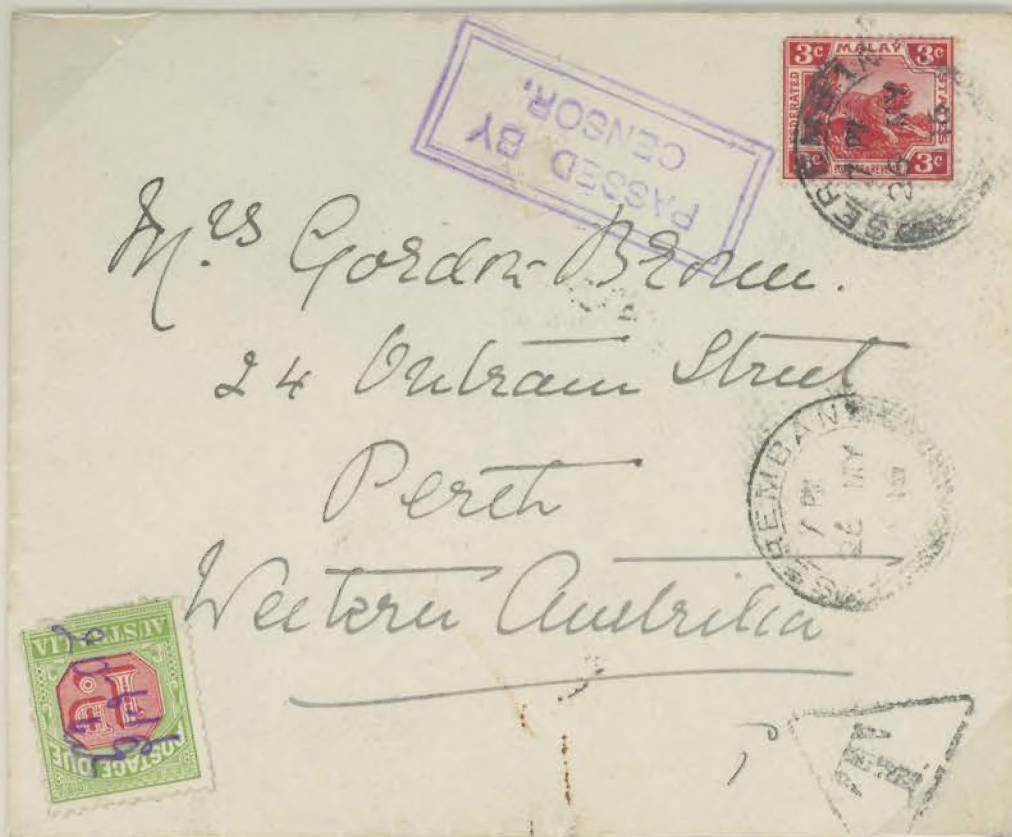 PASSED BY
CENSOR.
3c MALAY 3c
FEDERATED STATES
3c 3c
SEREMBAN
7 PM
26 MY
Mrs Gordon-Brown.
24 Outram Street
Perth
Western Australia
SEREMBAN
7 PM
26 MY
AUSTRALIA
1D
POSTAGE DUE
T